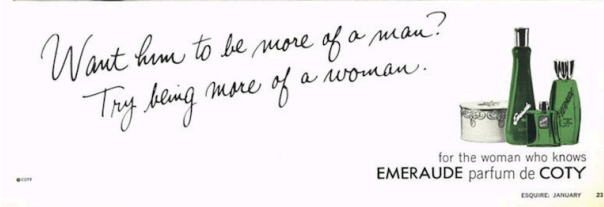 Want him to be more of a man?
Try being more of a woman.
for the woman who knows
EMERAUDE parfum de COTY
© COTY
ESQUIRE: JANUARY 23